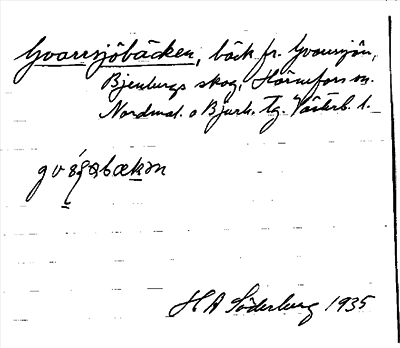 Gvarrsjöbäcken, bäck fr. Gvarrsjön,
Bjenbergs skog, Hörnefors sn.
Nordmal. o Bjurh. tg. Västerb. l.
H A Söderberg 1935